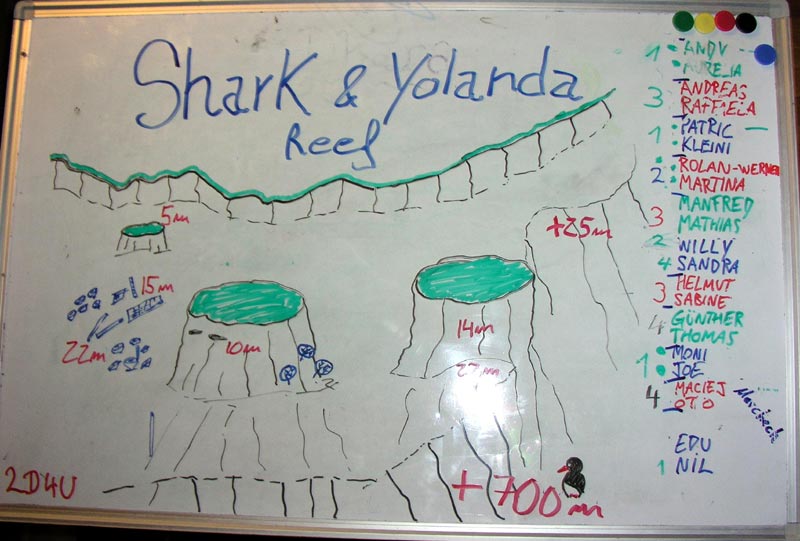 Shark & Yolanda
Reef
5m
+25m
15m
22m
10m
14m
27m
2D4U
+700m
1 ANDY
AURELIA
3 ANDREAS
RAFFAELA
1 PATRIC
KLEINI
2 ROLAN-WERNER
MARTINA
3 MANFRED
MATHIAS
2 WILLY
4 SANDRA
3 HELMUT
SABINE
4 GÜNTHER
THOMAS
1 MONI
JOE
4 MACIEJ
OTTO
EDU
1 NIL